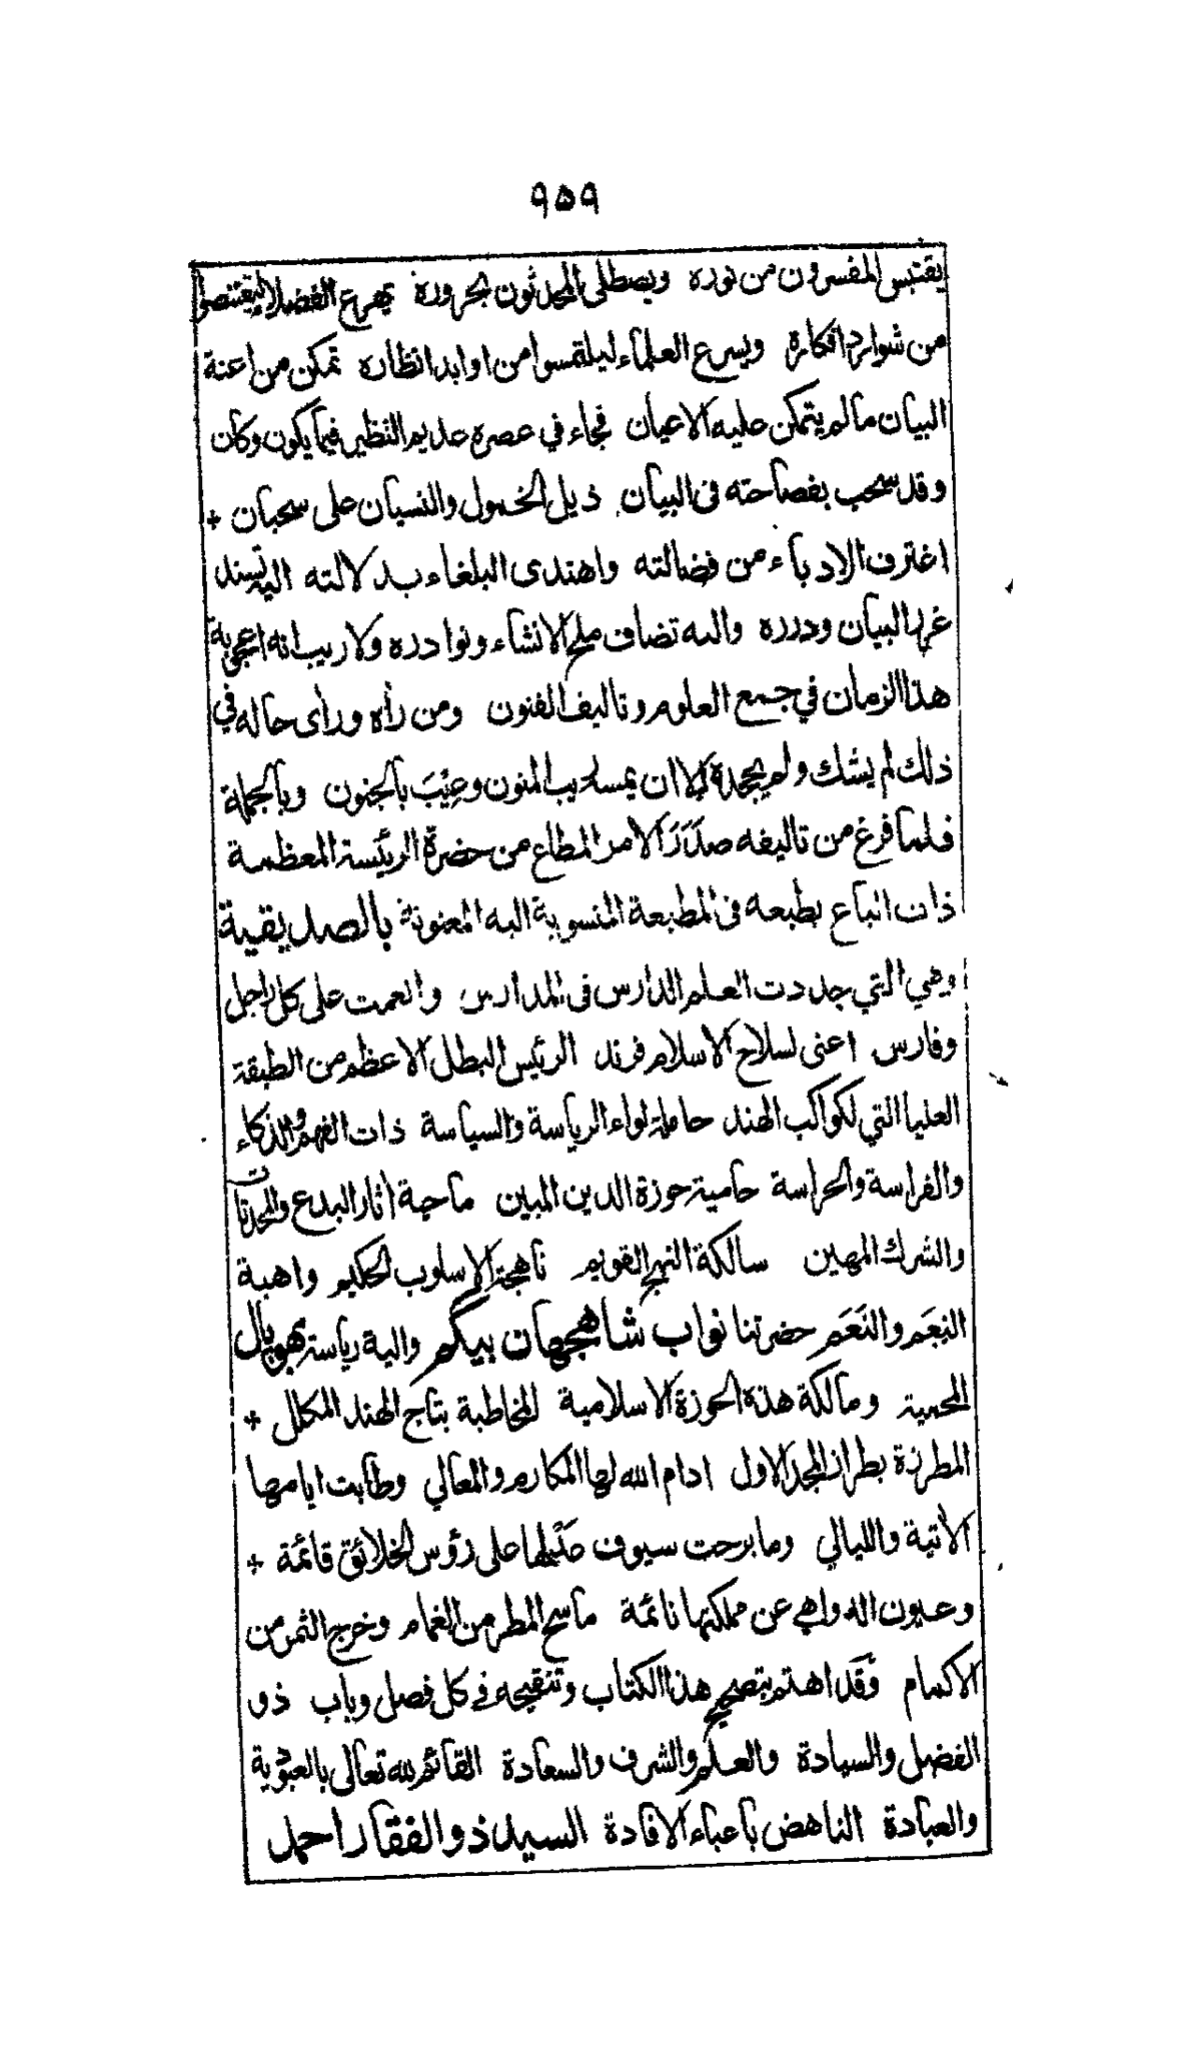 ٩٥٩
يقتبس المفسرون من نوره ويصطلى المحدثون بحروره يهرع الفضلا ليقتنصوا
من شوارد افكاره ويسرع العلماء ليلتمسوا من اوابد انظاره تمكن من اعنة
البيان ما لم يتمكن عليه الاعيان فجاء في عصره عديم النظير فيما يكون وكان
وقد سحب بفصاحته فى البيان ذيل الخمول والنسيان على سحبان +
اغترف الادباء من فضالته واهتدى البلغاء بدلالته اليه تسند
غرر البيان ودرره واليه تضاف ملح الانشاء ونوادره ولا ريب انه اعجوبة
هذا الزمان في جمع العلوم وتاليف الفنون ومن رأه ورأى حاله في
ذلك لم يشك ولم يجحده الا ان يمسه ريب المنون وعِيْبَ بالجنون وبالجملة
فلما فرغ من تاليفه صَدَرَ الامر المطاع من حضرة الرئيسة المعظمة
ذات اتباع بطبعه فى المطبعة المنسوبة اليه المعنونة بالصديقية
وهي التي جددت العلم الدارس فى المدارس وانعمت على كل راجل
وفارس اعنى لسلاح الاسلام فرند الرئيس البطل الاعظم من الطبقة
العليا التي لكواكب الهند حاملة لواء الرياسة والسياسة ذات الفهم والذكاء
والفراسة والحراسة حامية حوزة الدين المبين ماحية اثار البدع والمحدثات
والشرك المهين سالكة النهج القويم ناهجة الاسلوب الحكيم واهبة
النِعَم والنَعَم حضرتنا نواب شاهجهان بيگم والية رياسة بهوپال
المحمية ومالكة هذه الحوزة الاسلامية المخاطبة بتاج الهند المكلل +
المطرزة بطراز المجد الاول ادام الله لها المكارم والمعالي وطابت ايامها
الأتية والليالي وما برحت سيوف عدلها على رؤس الخلائق قائمة +
وعيون الدواهي عن مملكتها نائمة ما سح المطر من الغمام وخرج الثمر من
الاكمام وقد اهتم بتصحيح هذا الكتاب وتنقيحه في كل فصل وباب ذو
الفضل والسيادة والعلم والشرف والسعادة القائم لله تعالى بالعبودية
والعبادة الناهض باعباء الافادة السيد ذو الفقار احمد